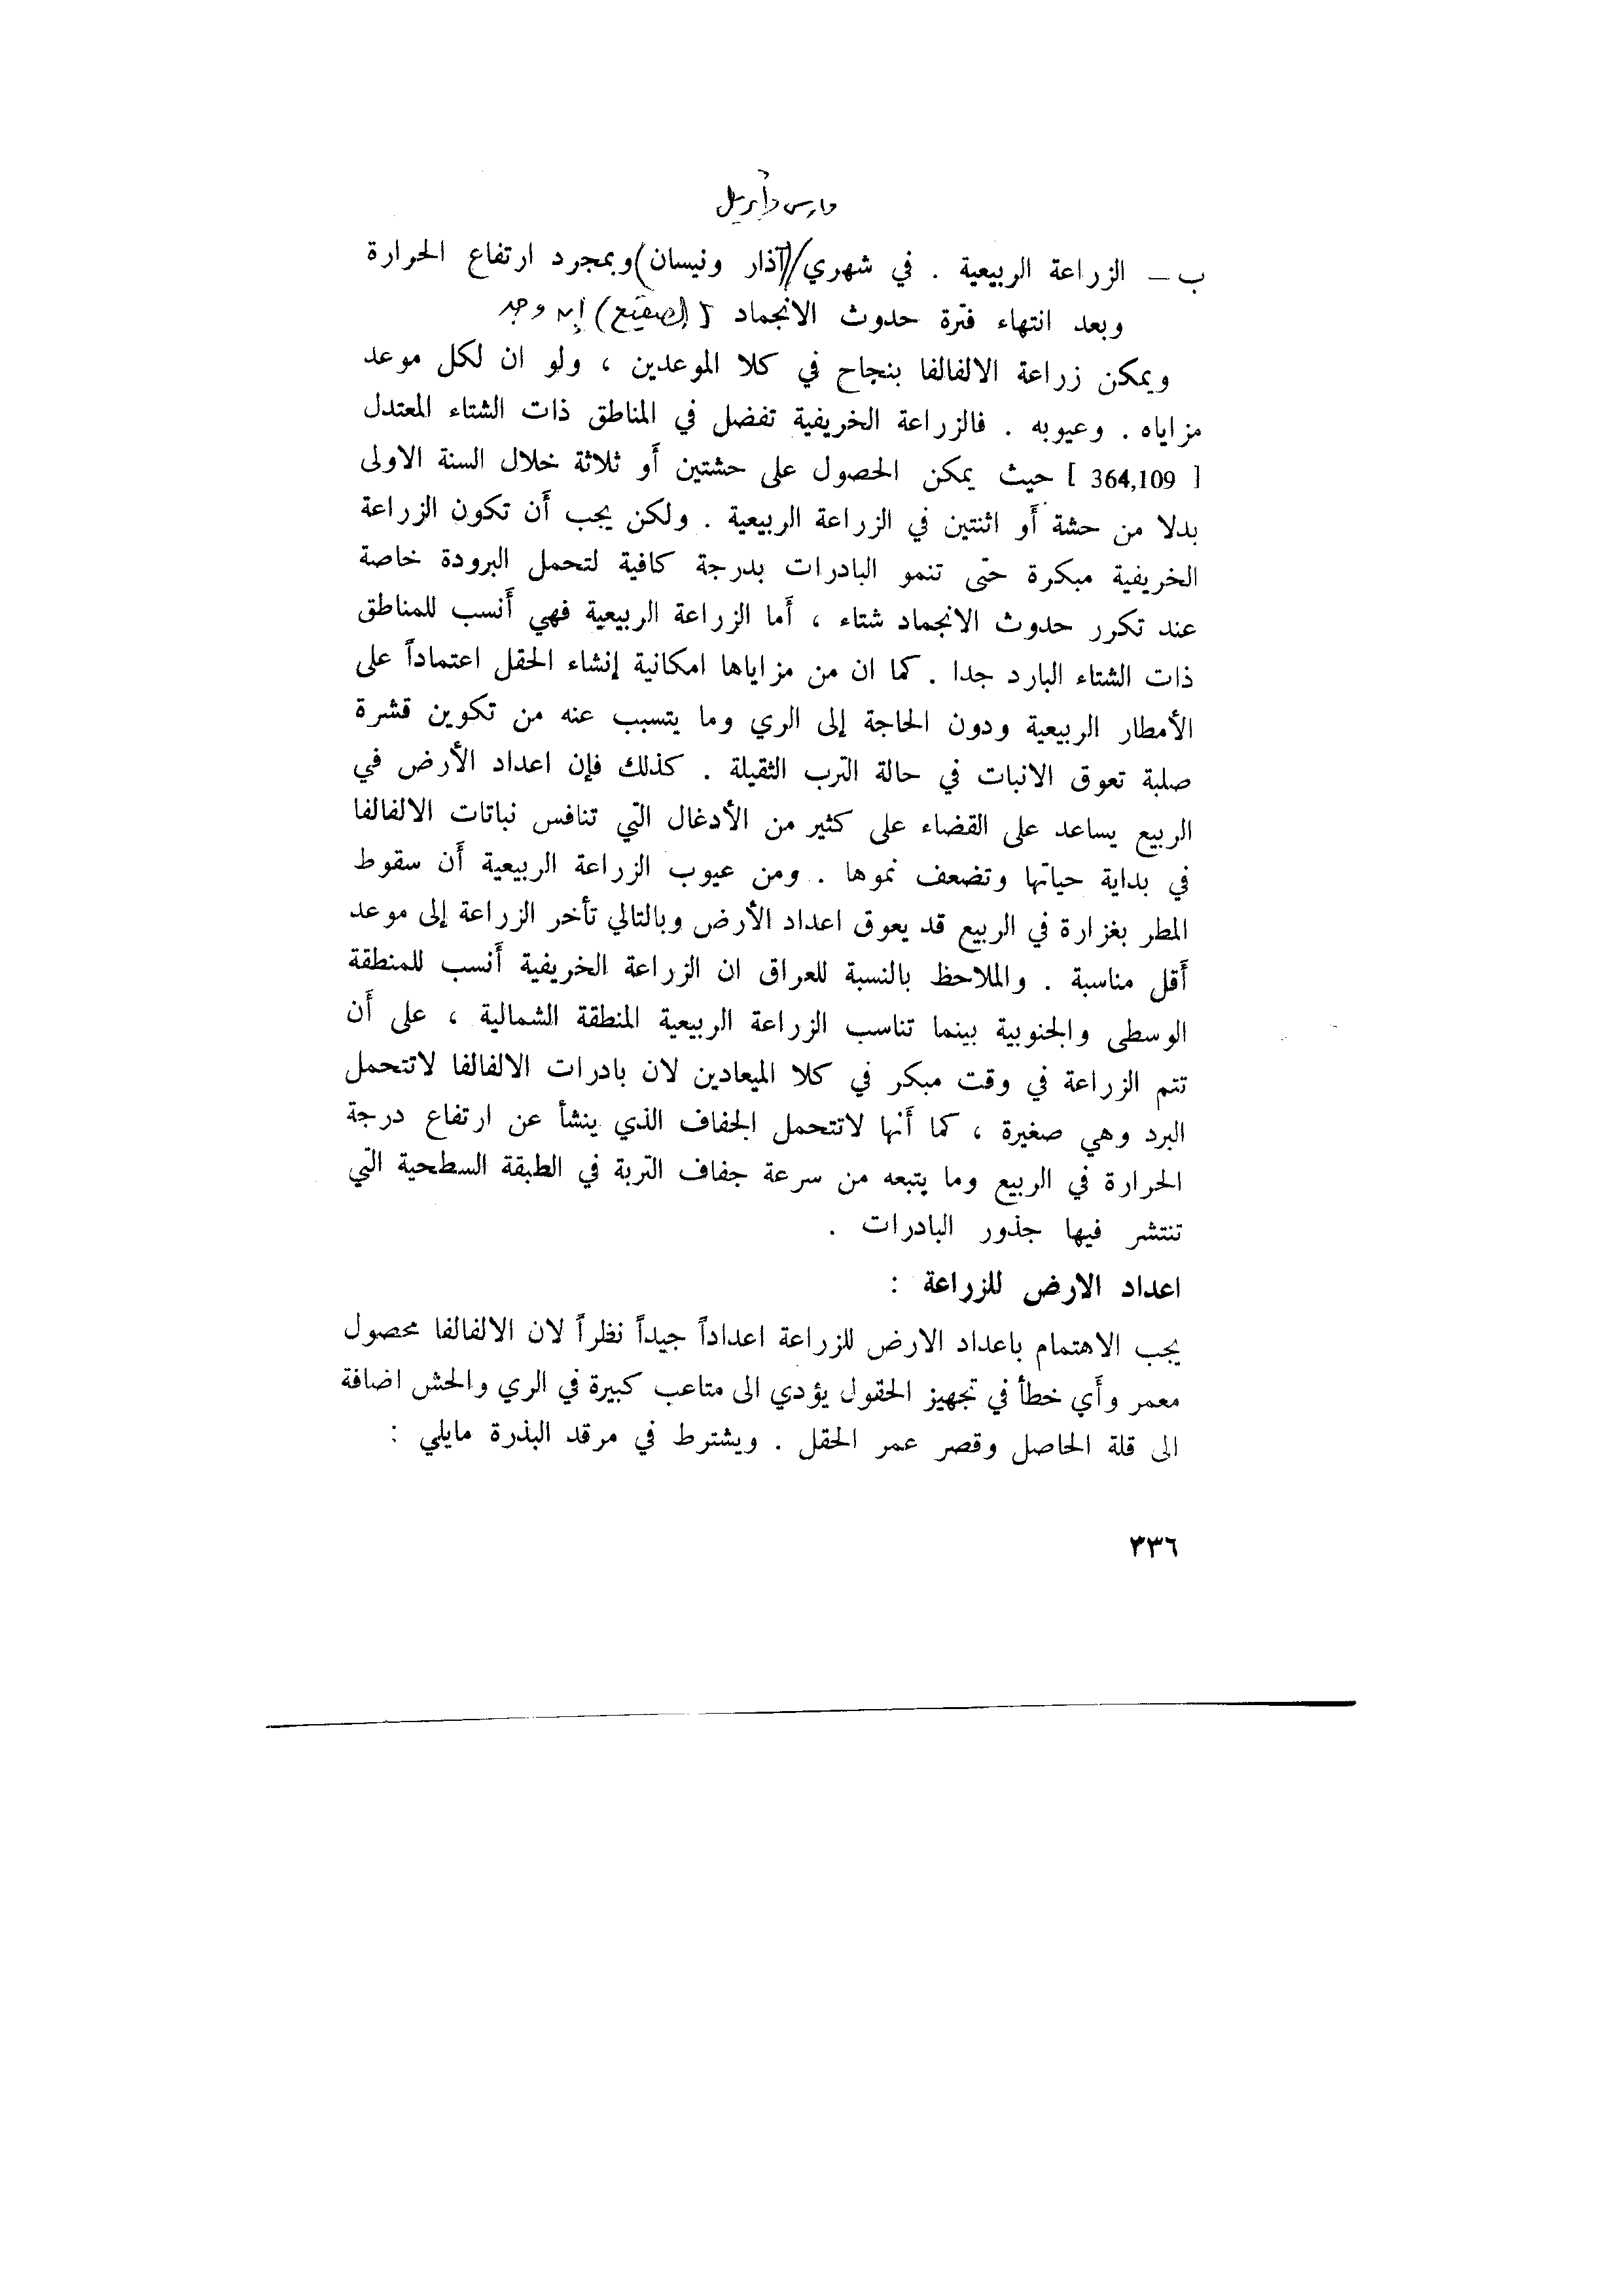 مارس وأبريل
ب – الزراعة الربيعية . في شهري (آذار ونيسان) وبمجرد ارتفاع الحرارة
وبعد انتهاء فترة حدوث الانجماد [ (الصقيع) إن وجد
ويمكن زراعة الالفالفا بنجاح في كلا الموعدين ، ولو ان لكل موعد
مزاياه . وعيوبه . فالزراعة الخريفية تفضل في المناطق ذات الشتاء المعتدل
[ 364,109 ] حيث يمكن الحصول على حشتين أو ثلاثة خلال السنة الاولى
بدلا من حشة أو اثنتين في الزراعة الربيعية . ولكن يجب أن تكون الزراعة
الخريفية مبكرة حتى تنمو البادرات بدرجة كافية لتحمل البرودة خاصة
عند تكرر حدوث الانجماد شتاء ، أما الزراعة الربيعية فهي أنسب للمناطق
ذات الشتاء البارد جدا . كما ان من مزاياها امكانية إنشاء الحقل اعتماداً على
الأمطار الربيعية ودون الحاجة إلى الري وما يتسبب عنه من تكوين قشرة
صلبة تعوق الانبات في حالة الترب الثقيلة . كذلك فإن اعداد الأرض في
الربيع يساعد على القضاء على كثير من الأدغال التي تنافس نباتات الالفالفا
في بداية حياتها وتضعف نموها . ومن عيوب الزراعة الربيعية أن سقوط
المطر بغزارة في الربيع قد يعوق اعداد الأرض وبالتالي تأخر الزراعة إلى موعد
أقل مناسبة . والملاحظ بالنسبة للعراق ان الزراعة الخريفية أنسب للمنطقة
الوسطى والجنوبية بينما تناسب الزراعة الربيعية المنطقة الشمالية ، على أن
تتم الزراعة في وقت مبكر في كلا الميعادين لان بادرات الالفالفا لاتتحمل
البرد وهي صغيرة ، كما أنها لاتتحمل الجفاف الذي ينشأ عن ارتفاع درجة
الحرارة في الربيع وما يتبعه من سرعة جفاف التربة في الطبقة السطحية التي
تنتشر فيها جذور البادرات .
اعداد الارض للزراعة :
يجب الاهتمام باعداد الارض للزراعة اعداداً جيداً نظراً لان الالفالفا محصول
معمر وأي خطأ في تجهيز الحقول يؤدي الى متاعب كبيرة في الري والحش اضافة
الى قلة الحاصل وقصر عمر الحقل . ويشترط في مرقد البذرة مايلي :
٣٣٦